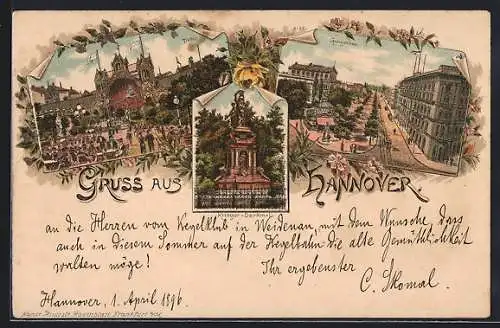 Tivoli
Georgstrasse
GRUSS AUS HANNOVER.
Krieger-Denkmal
an die Herren vom Kegelklub in Weidenau, mit dem Wunsche, dass
auch in diesem Sommer auf der Kegelbahn die alte Gemüthlichkeit
walten möge!
Ihr ergebenster
C. Skomal.
Hannover, 1. April 1896.
Kunst Anstalt Rosenblatt, Frankfurt